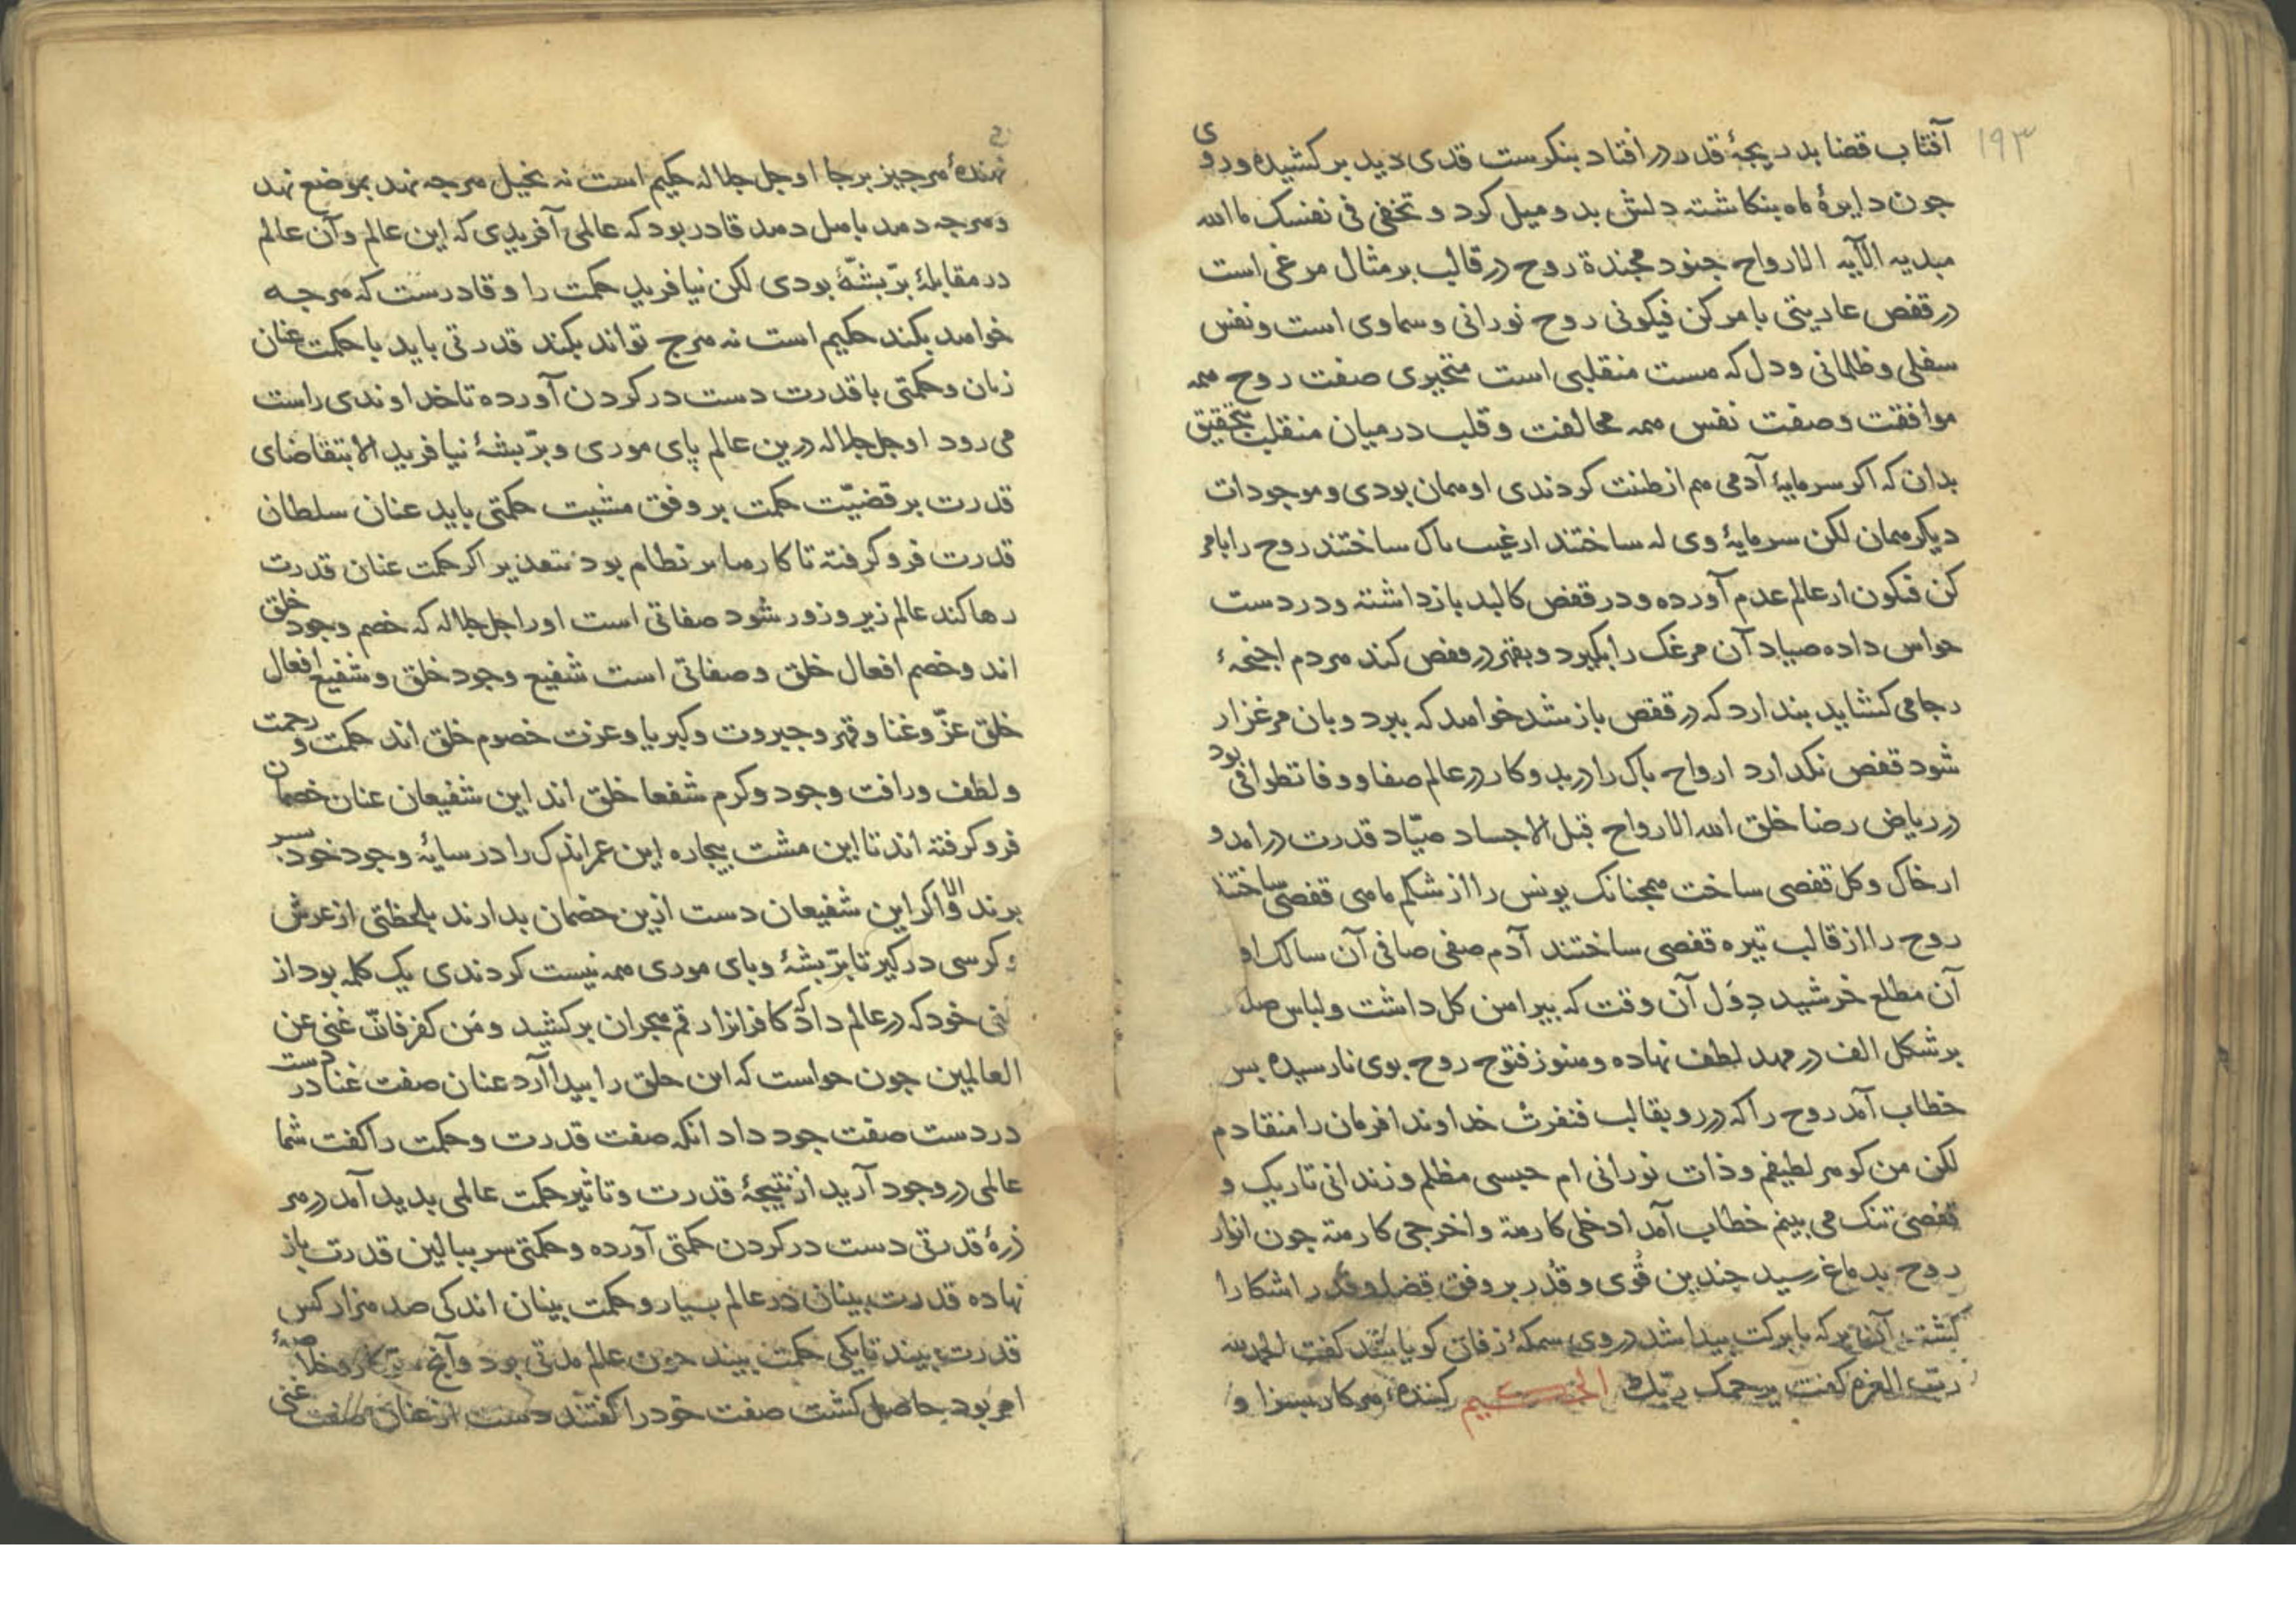 ۱۹۳
آفتاب قضا بدریجهٔ قدر در افتاد بنکرست قدی دید برکشیده و روی
جون دایرهٔ ماه بنکاشته دلش بدو میل کرد و تخفی فی نفسک ما الله
مبدیه الآیه الارواح جنود مجندة روح در قالب بر مثال مرغی است
در قفص عاریتی بامر کن فیکونی روح نورانی و سماوی است و نفس
سفلی و ظلمانی و دل که هست منقلبی است متحیری صفت روح همه
موافقت و صفت نفس همه مخالفت و قلب درمیان منقلب بتحقیق
بدان که اکر سرمایهٔ آدمی هم از طنت کردندی او همان بودی و موجودات
دیکر همان لکن سرمایهٔ وی له ساختند ارغیب باک ساختند روح را بامر
کن فیکون ارعالم عدم آورده و در قفص کالبد بازداشته و در دست
حواس داده صیاد آن مرغک را بکیرد و بقهر در قفص کند هر دم اجنحهٔ
رجا می کشاید بندارد که در قفص باز شد خواهد که ببرد و بان مرغزار
شود قفص نکدارد ارواح باک را در بدو کار در عالم صفا و وفا تطوافی بود
در ریاض رضا خلق الله الارواح قبل الاجساد صیّاد قدرت در امد و
ارخاک و کل قفصی ساخت همجنانک یونس را از شکم ماهی قفصی ساختند
روح را از قالب تیره قفصی ساختند آدم صفی صافی آن سالک او
آن مطلع خرشید دوَل آن وقت که بیراهن کل داشت و لباس
برشکل الف در مهد لطف نهاده و هنوز فتوح روح بوی نارسیده بس
خطاب آمد روح را که در رو بقالب فنفرت خداوندا فرمان را منقادم
لکن من کوهر لطیفم و ذات نورانی ام حبسی مظلم و زندانی تاریک و
قفصی تنک می بینم خطاب آمد ادخلی کارهة و اخرجی کارهة جون انوار
روح بدماغ رسید جندین قُوی و قُدر بر وفق قضا و قدر اشکارا
کشته آن بر که با برکت بیدا شد در وی سمکهٔ زفان کویا شد کفت الحمد لله
ربّ العزه کفت یرحمک ربّک الحکیم کنندهٔ هر کار بسزا و
نهندهٔ هر جیز برجا او جل جلاله حکیم است نه بخیل هرجه نهد بموضع نهد
و هرجه دهد باهل دهد قادر بود که عالمی آفریدی که این عالم و آن عالم
در مقابلهٔ برّ بشّهٔ بودی لکن نیافرید حکمت را و قادرست که هرجه
خواهد بکند حکیم است نه هرج تواند بکند قدرتی باید با حکمت عنان
زنان و حکمتی با قدرت دست در کردن آورده تا خداوندی راست
می رود او جل جلاله درین عالم پای موری و برّ بشهٔ نیافرید الا بتقاضای
قدرت بر قضیّت حکمت بر وفق مشیت حکمتی باید عنان سلطان
قدرت فروکرفته تا کارها بر نظام بود بتقدیر اکر حکمت عنان قدرت
رها کند عالم زیر و زور شود صفاتی است او را جل جلاله که خصم وجود خلق
اند و خصم افعال خلق و صفاتی است شفیع وجود خلق و شفیع افعال
خلق عزّ و غنا و قهر و جبروت و کبریا و عزت خصوم خلق اند حکمت و رحمت
و لطف و رافت و جود و کرم شفعا خلق اند این شفیعان عنان خصمان
فروکرفته اند تا این مشت بیجاره این عمر اندک را در سایهٔ وجود خود بسر
برند و الا اکر این شفیعان دست ازین خصمان بدارند بلحظتی از عرش
و کرسی در کیر تا برّ بشهٔ و بای موری همه نیست کردندی یک کلمه بود از
غنی خود که در عالم داد که کافرانرا رقم هجران برکشید و مَن کفر فانّ غنی عن
العالمین جون خواست که این خلق را بیدا آرد عنان صفت غنا در دست
در دست صفت جود داد انکه صفت قدرت و حکمت را کفت شما
عالمی در وجود آرید از نتیجهٔ قدرت و تاثیر حکمت عالمی بدید آمد در هر
ذرهٔ قدرتی دست در کردن حکمتی آورده و حکمتی سر ببالین قدرت باز
نهاده قدرت بینان در عالم بسیار و حکمت بینان اندکی صد هزار کس
قدرت بیند تا یکی حکمت بیند جون عالم مدتی بود و آنج سر کار و خلاصهٔ
امر بود حاصل کشت صفت جود را کفتند دست از عنان صفت غنی